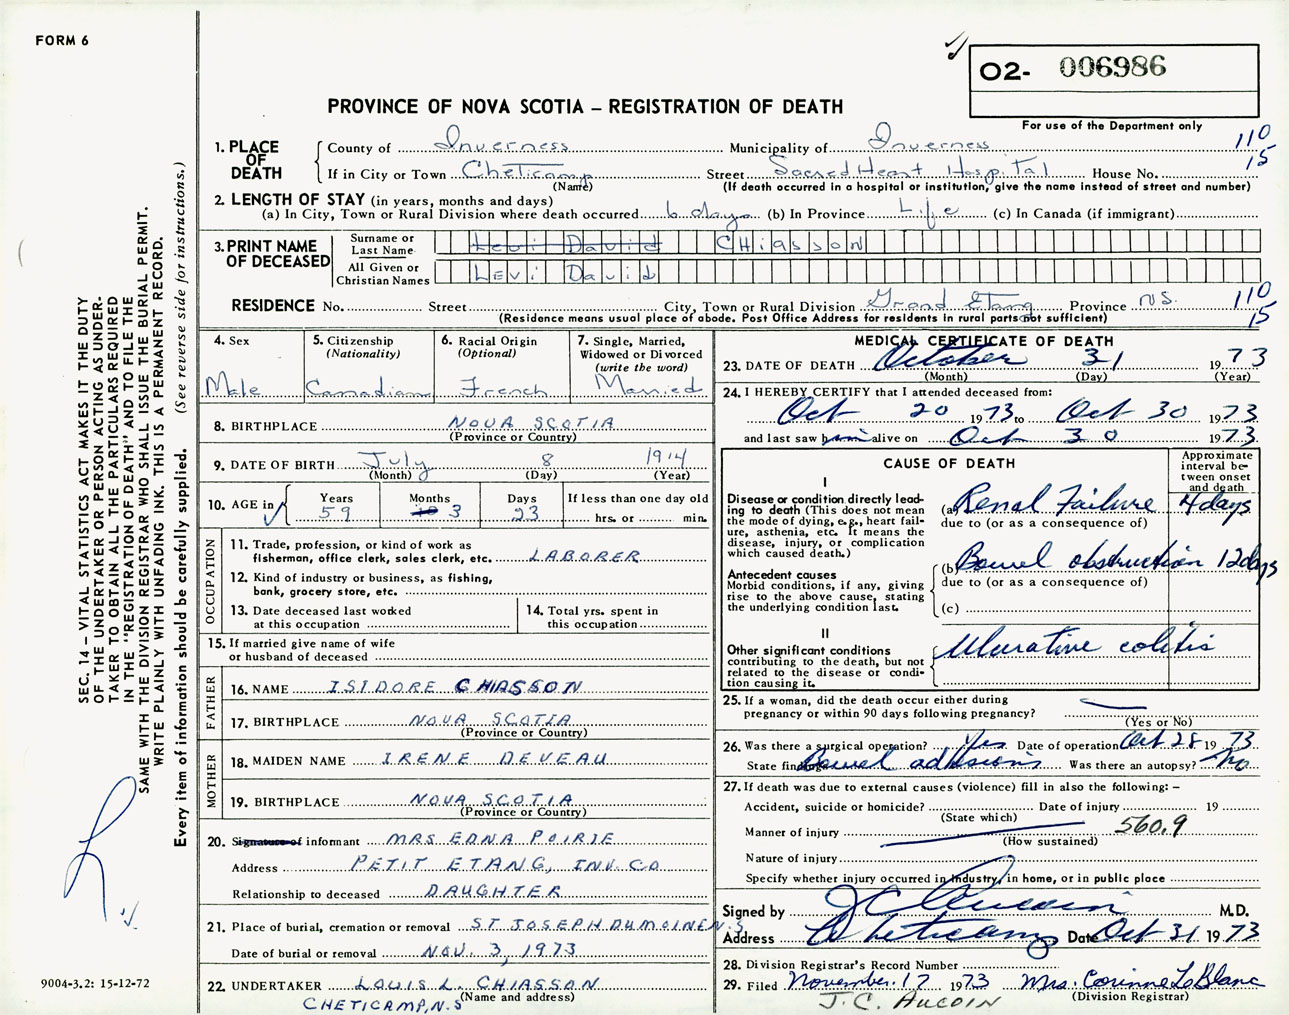 FORM 6
O2- 006986
PROVINCE OF NOVA SCOTIA – REGISTRATION OF DEATH
For use of the Department only
1. PLACE OF DEATH
County of Inverness Municipality of Inverness 110
If in City or Town Cheticamp Street Sacred Heart Hospital House No. 15
(Name) (If death occurred in a hospital or institution, give the name instead of street and number)
2. LENGTH OF STAY (in years, months and days)
(a) In City, Town or Rural Division where death occurred 6 days (b) In Province Life (c) In Canada (if immigrant)
3. PRINT NAME OF DECEASED
Surname or Last Name Levi David CHIASSON
All Given or Christian Names LEVI David
RESIDENCE No. Street City, Town or Rural Division Grand Etang Province N.S. 110
(Residence means usual place of abode. Post Office Address for residents in rural parts not sufficient) 15
4. Sex
Male
5. Citizenship
(Nationality)
Canadian
6. Racial Origin
(Optional)
French
7. Single, Married, Widowed or Divorced
(write the word)
Married
8. BIRTHPLACE NOVA SCOTIA
(Province or Country)
9. DATE OF BIRTH July 8 1914
(Month) (Day) (Year)
10. AGE in Years Months Days If less than one day old
59 10 3 23 hrs. or min.
OCCUPATION
11. Trade, profession, or kind of work as
fisherman, office clerk, sales clerk, etc. LABORER
12. Kind of industry or business, as fishing,
bank, grocery store, etc.
13. Date deceased last worked
at this occupation
14. Total yrs. spent in
this occupation
15. If married give name of wife
or husband of deceased
FATHER
16. NAME ISIDORE CHIASSON
17. BIRTHPLACE NOVA SCOTIA
(Province or Country)
MOTHER
18. MAIDEN NAME IRENE DEVEAU
19. BIRTHPLACE NOVA SCOTIA
(Province or Country)
20. Signature of informant MRS EDNA POIRIE
Address PETIT ETANG, INV. CO
Relationship to deceased DAUGHTER
21. Place of burial, cremation or removal ST JOSEPH DUMOINE N.S
Date of burial or removal NOV. 3, 1973
22. UNDERTAKER LOUIS L. CHIASSON
(Name and address)
CHETICAMP, N.S
MEDICAL CERTIFICATE OF DEATH
23. DATE OF DEATH October 31 1973
(Month) (Day) (Year)
24. I HEREBY CERTIFY that I attended deceased from:
Oct 20 1973 to Oct 30 1973
and last saw him alive on Oct 30 1973
CAUSE OF DEATH
Approximate interval between onset and death
I
Disease or condition directly leading to death (This does not mean the mode of dying, e.g., heart failure, asthenia, etc. It means the disease, injury, or complication which caused death.)
(a) Renal Failure 4 days
due to (or as a consequence of)
Antecedent causes
Morbid conditions, if any, giving rise to the above cause, stating the underlying condition last.
(b) Bowel obstruction 12 days
due to (or as a consequence of)
(c)
II
Other significant conditions
contributing to the death, but not related to the disease or condition causing it.
Ulcerative colitis
25. If a woman, did the death occur either during
pregnancy or within 90 days following pregnancy?
(Yes or No)
26. Was there a surgical operation? Yes Date of operation Oct 28 1973
State findings Bowel adhesions Was there an autopsy? No
27. If death was due to external causes (violence) fill in also the following: –
Accident, suicide or homicide? Date of injury 19
(State which)
Manner of injury 560.9
(How sustained)
Nature of injury
Specify whether injury occurred in industry, in home, or in public place
Signed by J C Aucoin M.D.
Address Cheticamp Date Oct 31 1973
28. Division Registrar's Record Number
29. Filed November 17 1973 Mrs. Corinne LeBlanc
(Division Registrar)
J.C. AUCOIN
SEC. 14 – VITAL STATISTICS ACT MAKES IT THE DUTY
OF THE UNDERTAKER OR PERSON ACTING AS UNDER-
TAKER TO OBTAIN ALL THE PARTICULARS REQUIRED
IN THE "REGISTRATION OF DEATH" AND TO FILE THE
SAME WITH THE DIVISION REGISTRAR WHO SHALL ISSUE THE BURIAL PERMIT.
WRITE PLAINLY WITH UNFADING INK. THIS IS A PERMANENT RECORD.
Every item of information should be carefully supplied. (See reverse side for instructions.)
9004-3.2: 15-12-72